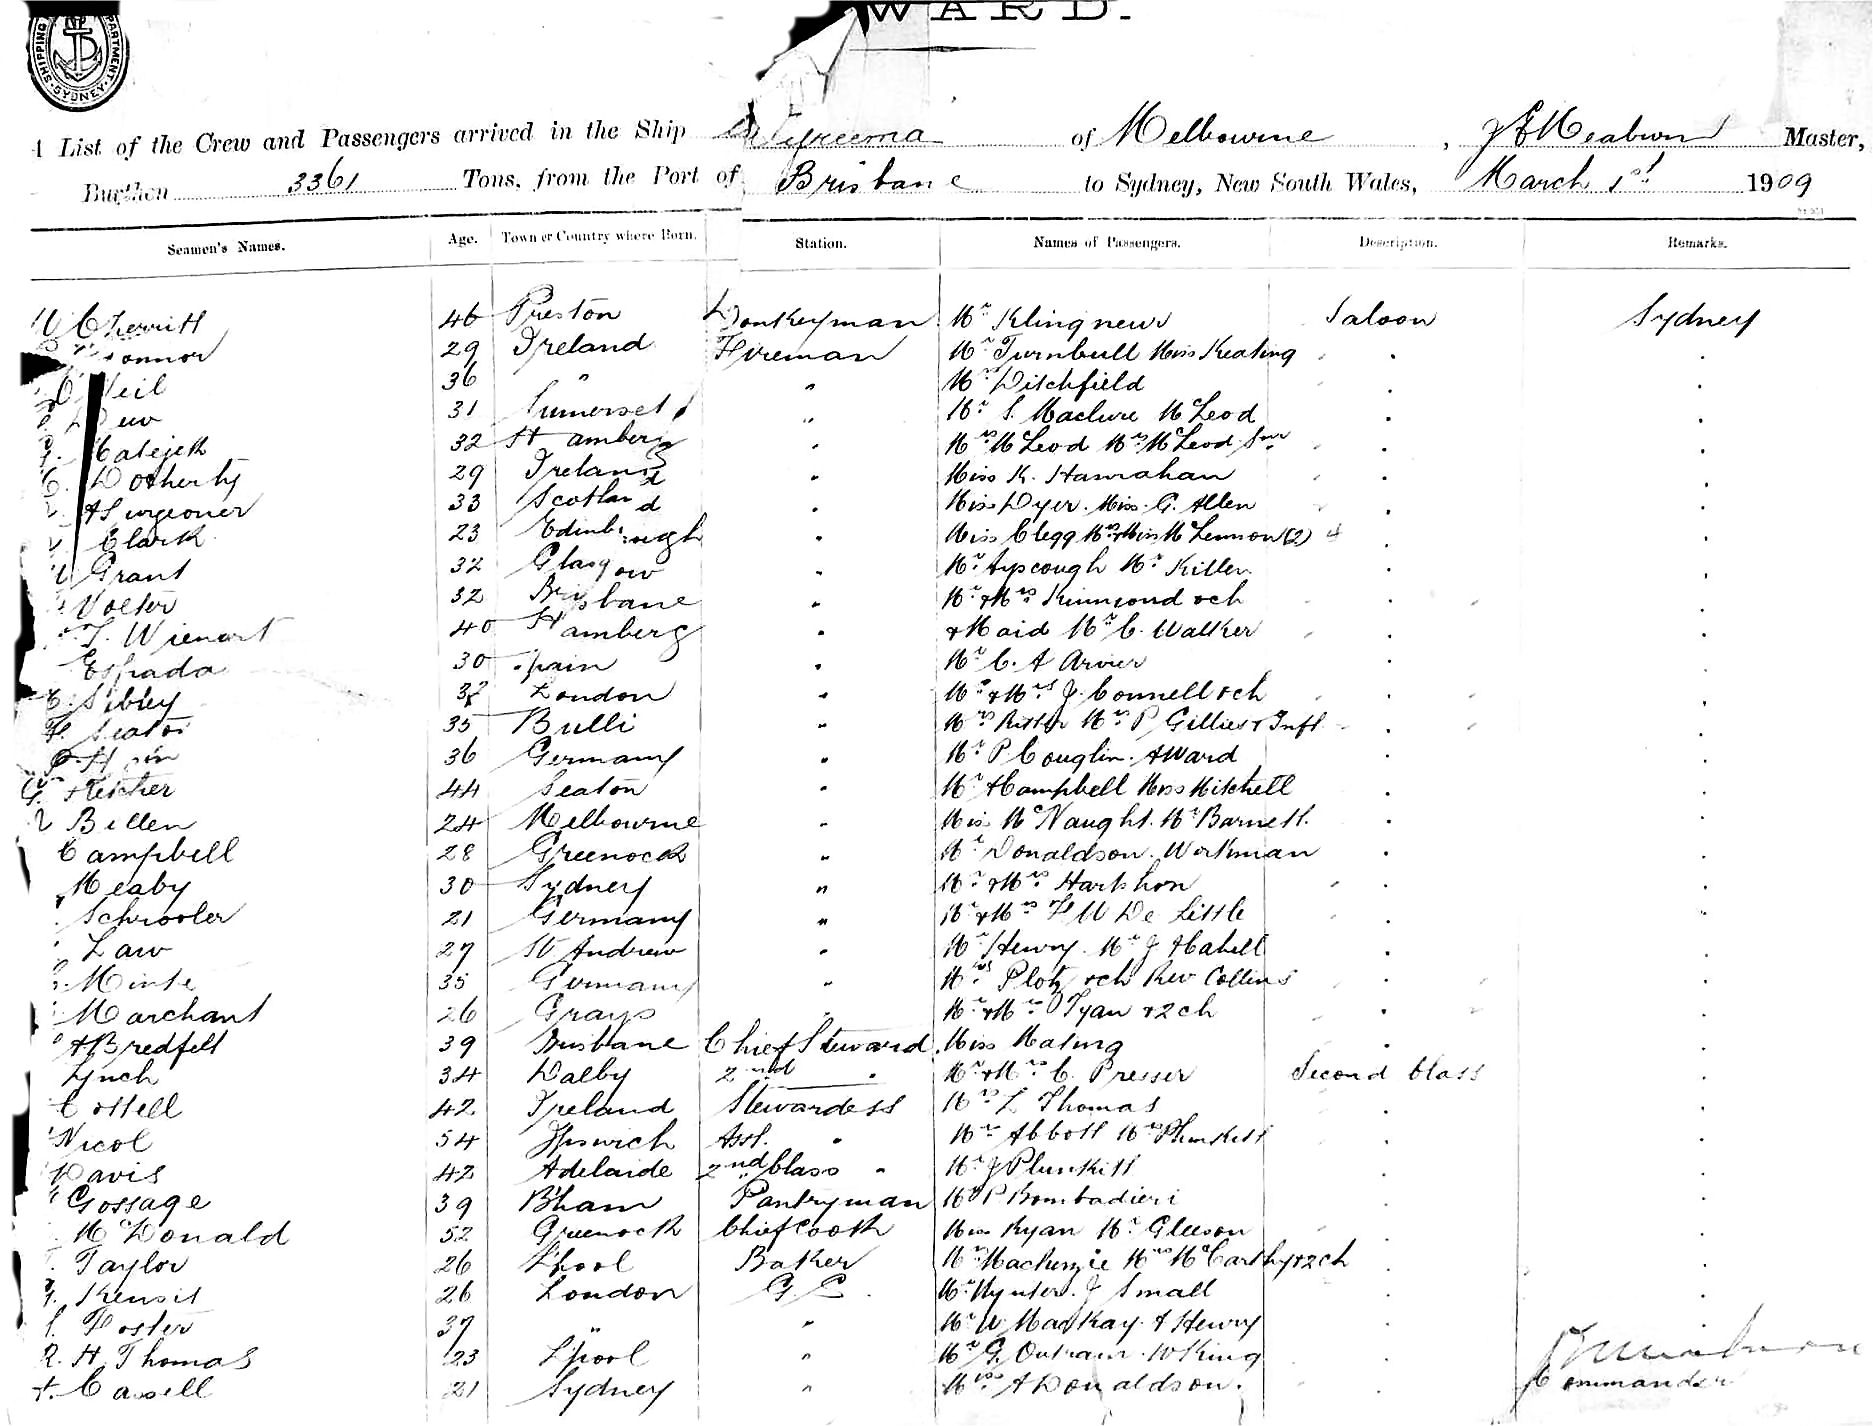 WARD.
SHIPPING DEPARTMENT. SYDNEY
List of the Crew and Passengers arrived in the Ship Wyreema of Melbourne, Meaburn Master,
Burthen 3361 Tons, from the Port of Brisbane to Sydney, New South Wales, March 1st 1909
Seamen's Names. Age. Town or Country where Born. Station. Names of Passengers. Description. Remarks.
Cherritt 46 Preston Donkeyman Mr Klingnew Saloon Sydney
Connor 29 Ireland Fireman Mr Turnbull Miss Keating
Neil 36 " " Mr Ditchfield
Dew 31 Sumerset " Mr S. Maclure McLeod
Matejek 32 Hamberg " Mrs McLeod Mrs McLeod Snr
Dotherty 29 Ireland " Miss K. Hanrahan
A Surgeoner 33 Scotland " Miss Dyer. Miss. G. Allen
Clark 23 Edinburgh " Miss Clegg Mrs & Miss McLennon (2)
Grant 32 Glasgow " Mr Ayscough Mr Killen
Volter 32 Brisbane " Mr & Mrs Kinmond & ch
T. Wienart 40 Hamberg " & Maid Mr C. Walker
Espada 30 Spain " Mr C. A Arvier
C. Sibley London " Mr & Mrs J. Connell & ch
Seator 35 Bulli " Mrs P Gillies & Inft
36 Germany " Mr P. Couglin. A Ward
G. Fletcher 44 Seaton " Mr A Campbell Miss Mitchell
Billen 24 Melbourne " Miss McNaught. Mr Barnett.
Campbell 28 Greenock " Mr Donaldson. Workman
Meaby 30 Sydney " Mr & Mrs Harkhon
Schrooler 21 Germany " Mr & Mrs F W De Little
Law 27 St Andrew " Mr Henry. Mr J Cahill
Minte 35 Germany " Mrs Plotz & ch Rev Collins
Marchant 26 Grays " Mr & Mrs O'Tyan & 2 ch
A Bredfelt 39 Brisbane Chief Steward Miss Maling
Lynch 34 Dalby 2nd " Mr & Mrs C. Presser Second Class
Cottell 42 Ireland Stewardess Mrs L Thomas
Nicol 54 Ipswich Asst. " Mr Abbott Mrs Plunkitt
Davis 42 Adelaide 2nd Class " Mr J Plunkitt
Gossage 39 B'ham Pantryman Mr P Bombadieri
McDonald 52 Greenock Chief Cook Miss Ryan Mr Gleeson
Taylor 26 L'pool Baker Mr Mackenzie Mrs McCarthy & 2 ch
Kensit 26 London G.S. Mr Wynter. J Small
Foster 37 " " Mr W MacKay. A Henry
R. H Thomas 23 L'pool " Mr G. Outram. W King
A. Casell 21 Sydney " Mrs A Donaldson.
Commander